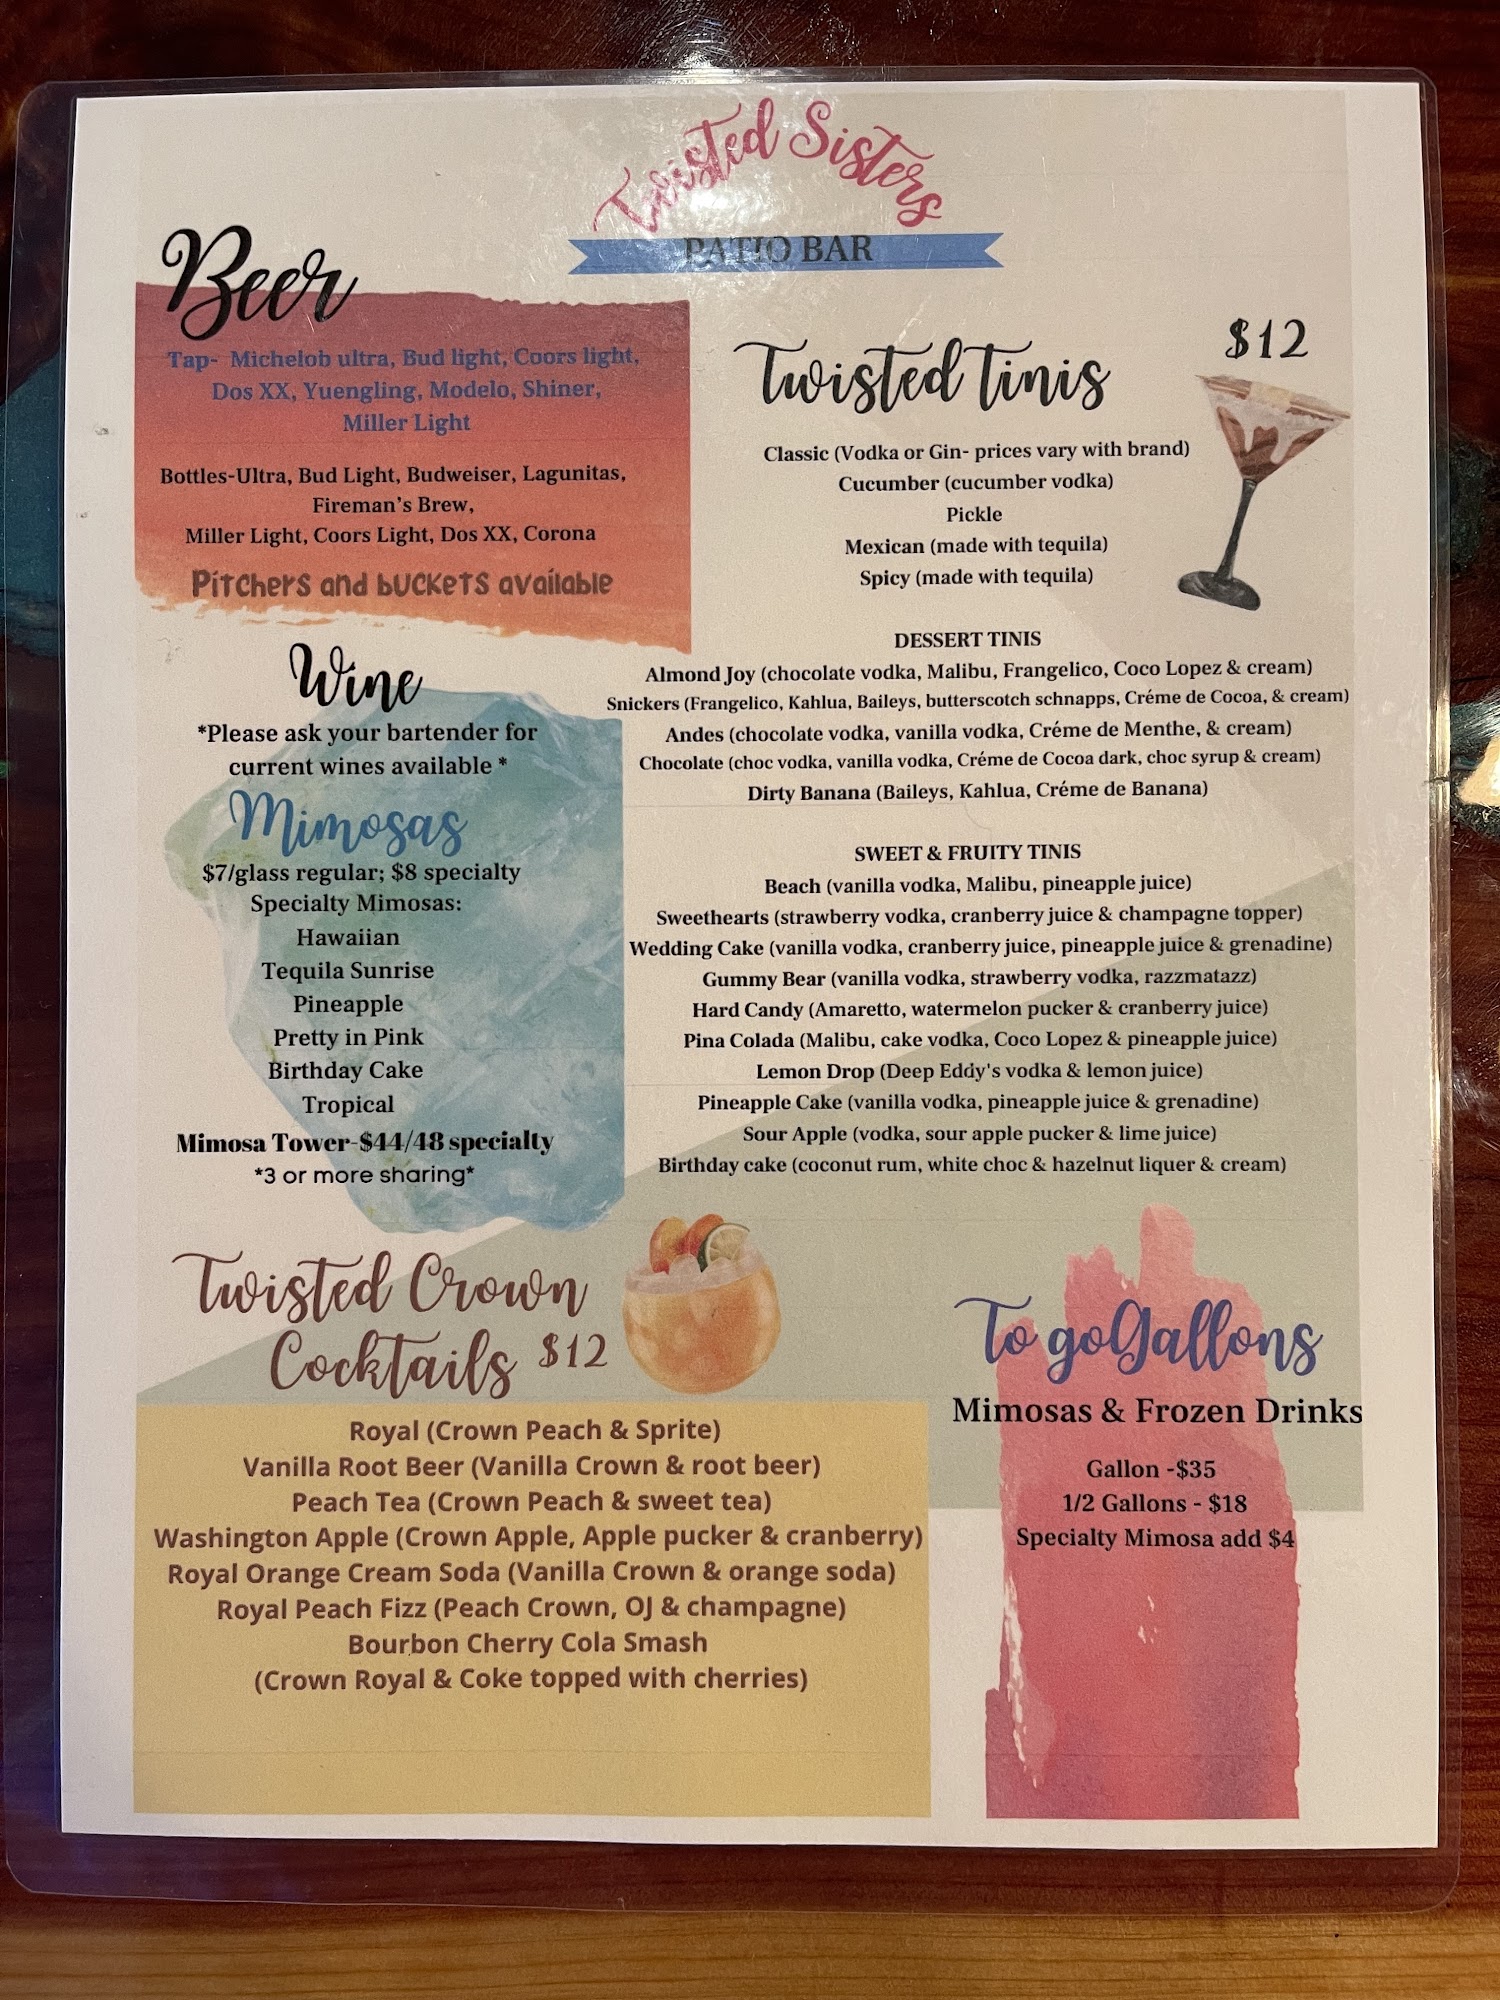 Twisted Sisters
PATIO BAR
Beer
Tap- Michelob ultra, Bud light, Coors light,
Dos XX, Yuengling, Modelo, Shiner,
Miller Light
Bottles-Ultra, Bud Light, Budweiser, Lagunitas,
Fireman's Brew,
Miller Light, Coors Light, Dos XX, Corona
Pitchers and buckets available
Wine
*Please ask your bartender for
current wines available *
Mimosas
$7/glass regular; $8 specialty
Specialty Mimosas:
Hawaiian
Tequila Sunrise
Pineapple
Pretty in Pink
Birthday Cake
Tropical
Mimosa Tower-$44/48 specialty
*3 or more sharing*
Twisted Tinis
$12
Classic (Vodka or Gin- prices vary with brand)
Cucumber (cucumber vodka)
Pickle
Mexican (made with tequila)
Spicy (made with tequila)
DESSERT TINIS
Almond Joy (chocolate vodka, Malibu, Frangelico, Coco Lopez & cream)
Snickers (Frangelico, Kahlua, Baileys, butterscotch schnapps, Créme de Cocoa, & cream)
Andes (chocolate vodka, vanilla vodka, Créme de Menthe, & cream)
Chocolate (choc vodka, vanilla vodka, Créme de Cocoa dark, choc syrup & cream)
Dirty Banana (Baileys, Kahlua, Créme de Banana)
SWEET & FRUITY TINIS
Beach (vanilla vodka, Malibu, pineapple juice)
Sweethearts (strawberry vodka, cranberry juice & champagne topper)
Wedding Cake (vanilla vodka, cranberry juice, pineapple juice & grenadine)
Gummy Bear (vanilla vodka, strawberry vodka, razzmatazz)
Hard Candy (Amaretto, watermelon pucker & cranberry juice)
Pina Colada (Malibu, cake vodka, Coco Lopez & pineapple juice)
Lemon Drop (Deep Eddy's vodka & lemon juice)
Pineapple Cake (vanilla vodka, pineapple juice & grenadine)
Sour Apple (vodka, sour apple pucker & lime juice)
Birthday cake (coconut rum, white choc & hazelnut liquer & cream)
Twisted Crown
Cocktails $12
Royal (Crown Peach & Sprite)
Vanilla Root Beer (Vanilla Crown & root beer)
Peach Tea (Crown Peach & sweet tea)
Washington Apple (Crown Apple, Apple pucker & cranberry)
Royal Orange Cream Soda (Vanilla Crown & orange soda)
Royal Peach Fizz (Peach Crown, OJ & champagne)
Bourbon Cherry Cola Smash
(Crown Royal & Coke topped with cherries)
To go Gallons
Mimosas & Frozen Drinks
Gallon -$35
1/2 Gallons - $18
Specialty Mimosa add $4